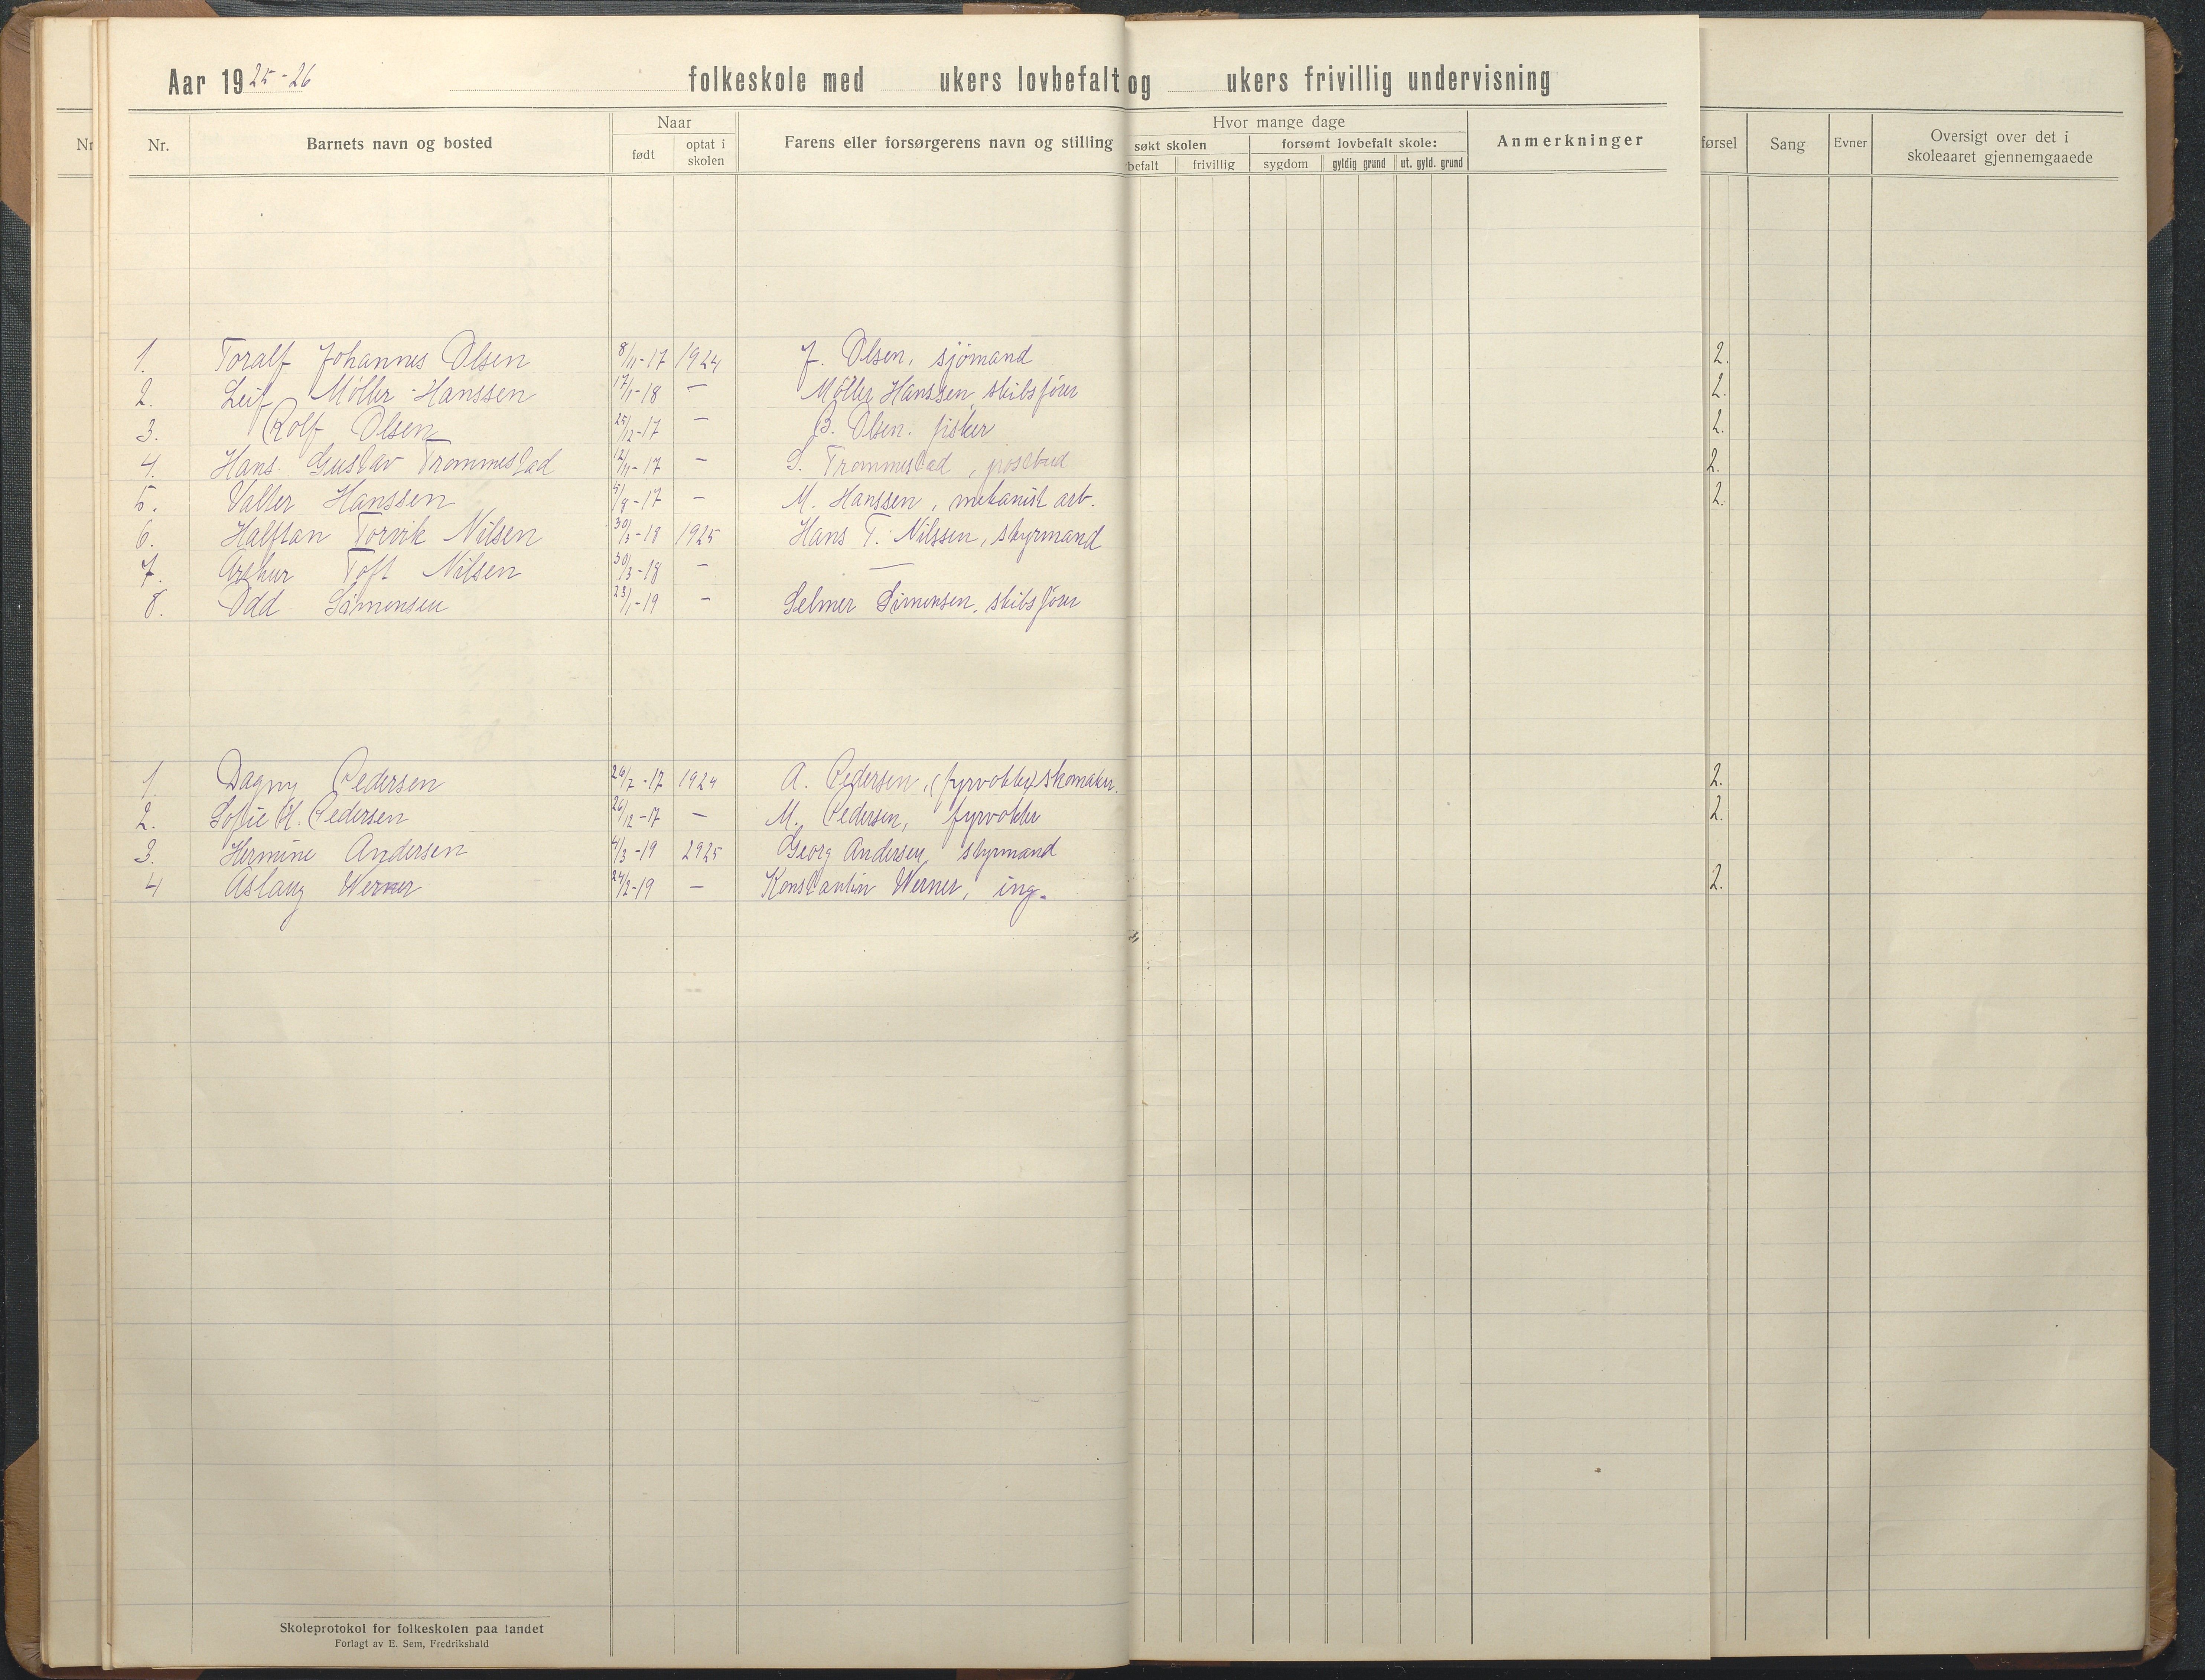 Aar 1925-26 folkeskole med ukers lovbefalt og ukers frivillig undervisning
Nr
Nr. Barnets navn og bosted Naar født optat i skolen Farens eller forsørgerens navn og stilling
Hvor mange dage
søkt skolen forsømt lovbefalt skole: Anmerkninger
befalt frivillig sygdom gyldig grund ut. gyld. grund
førsel Sang Evner Oversigt over det i skoleaaret gjennemgaaede
1. Toralf Johannes Olsen 8/11-17 1924 J. Olsen, sjömand 2.
2. Leif Möller-Hanssen 17/1-18 — Möller Hanssen, skibsförer 2.
3. Rolf Olsen 25/12-17 — B. Olsen. fisker 2.
4. Hans Gustav Trommestad 12/11-17 — S. Trommestad, postbud 2.
5. Valter Hanssen 5/9-17 — M. Hanssen, mekanisk arb. 2.
6. Halftan Torvik Nilsen 30/3-18 1925 Hans T. Nilssen, styrmand
7. Arthur Toft Nilsen 30/3-18 — —
8. Odd Simonsen 23/1-19 — Selmer Simonsen, skibsförer
1. Dagny Pedersen 26/7-17 1924 A. Pedersen, (fyrvokter) skomaker. 2.
2. Sofie H. Pedersen 26/12-17 — M. Pedersen, fyrvokter 2.
3. Hermine Andersen 4/3-19 2925 Georg Andersen, styrmand
4 Aslaug Werner 24/2-19 — Konstantin Werner, ing. 2.
Skoleprotokol for folkeskolen paa landet
Forlagt av E. Sem, Fredrikshald